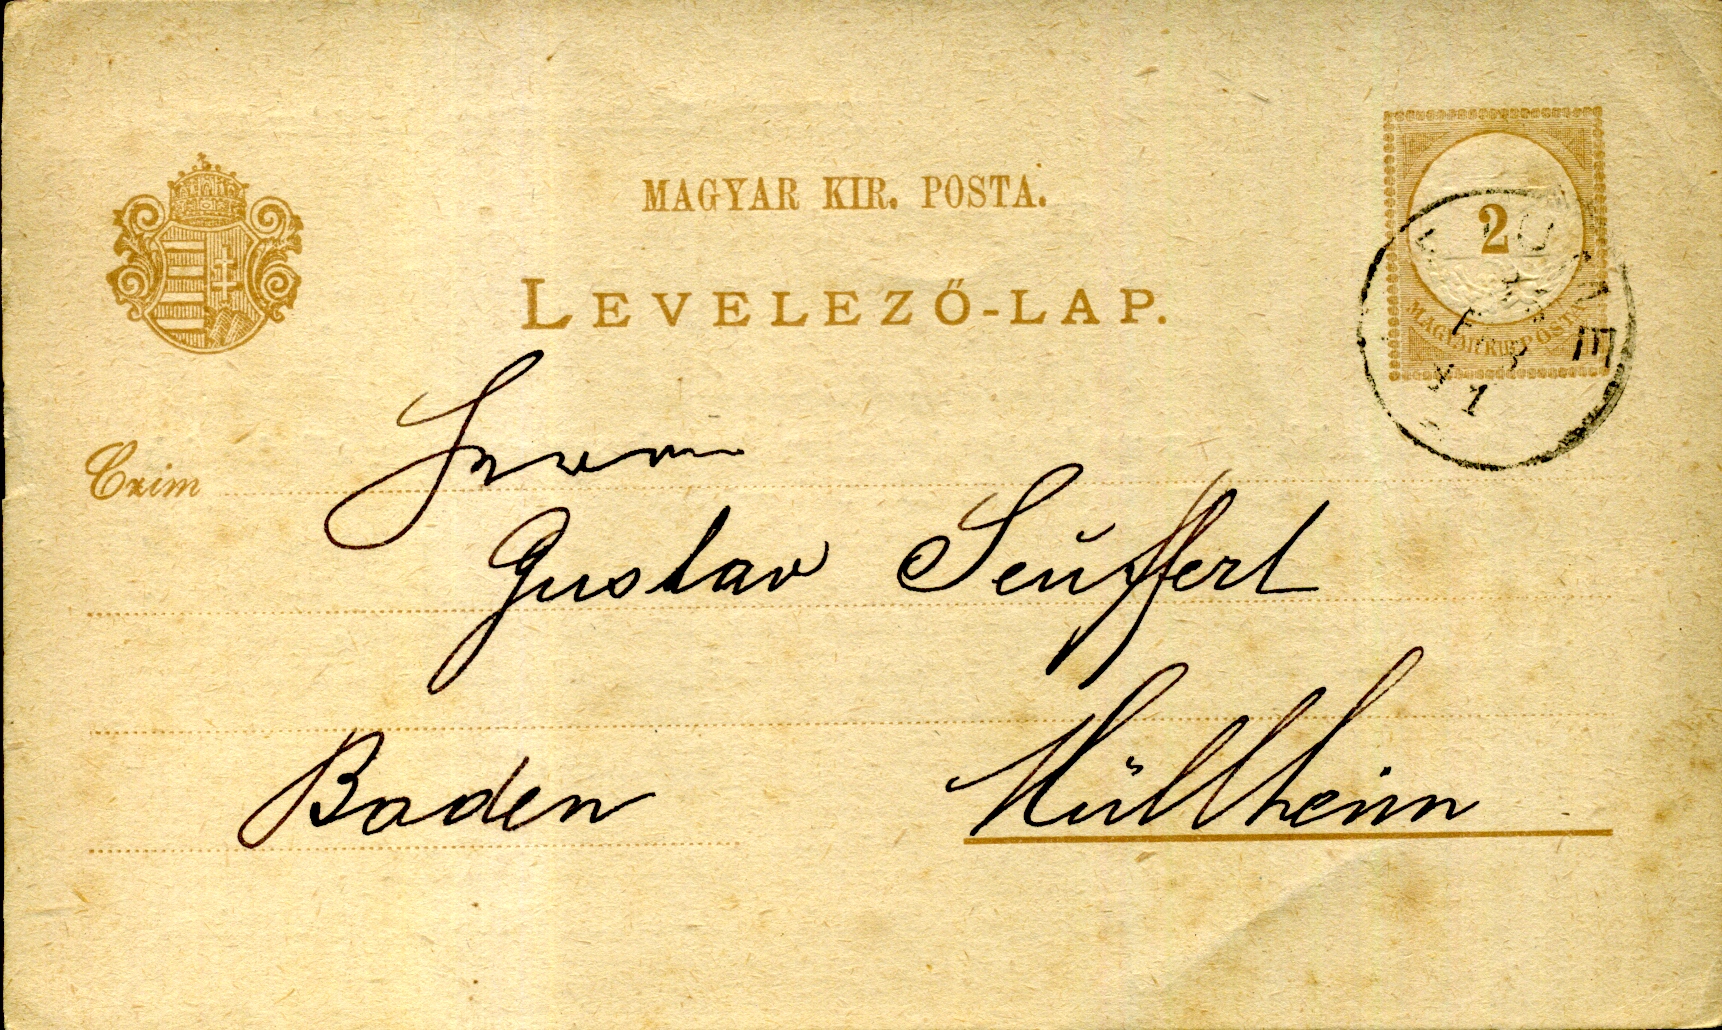 MAGYAR KIR. POSTA.
LEVELEZŐ-LAP.
2
MAGYAR KIR. POSTA
Czim
Herrn
Gustav Seuffert
Baden
Müllheim